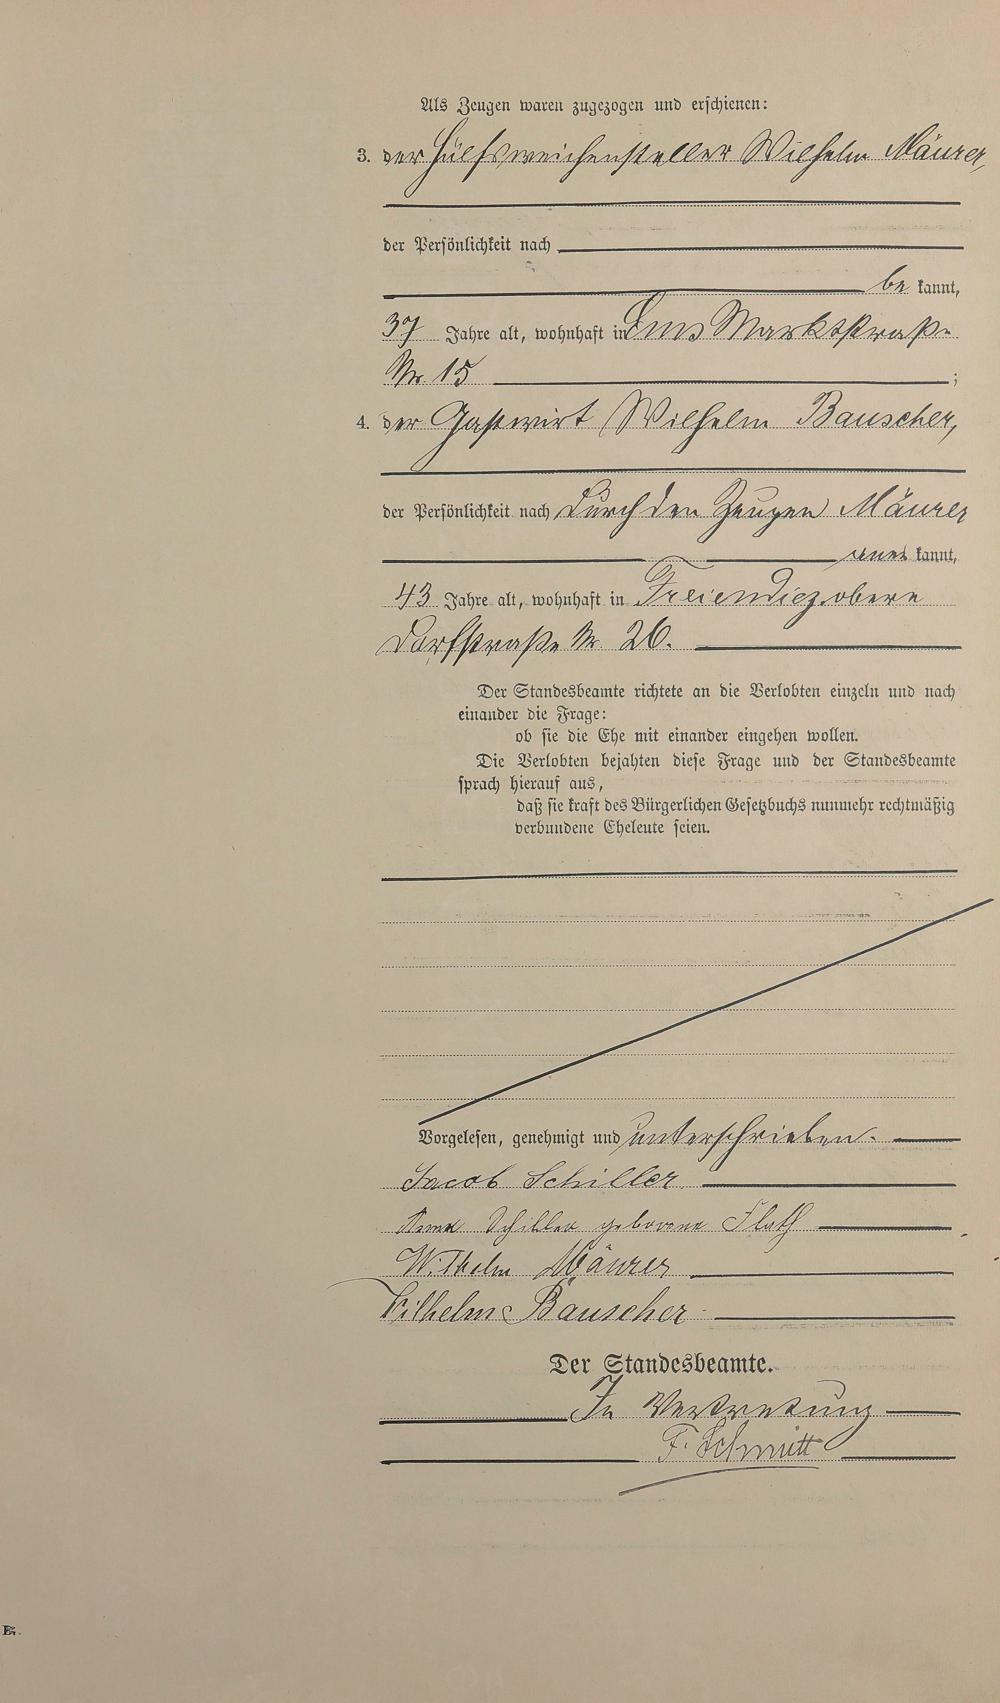 Als Zeugen waren zugezogen und erschienen:
3. der Hülfsweichensteller Wilhelm Mäurer,
der Persönlichkeit nach
be kannt,
37 Jahre alt, wohnhaft in Ems Marktstraße
Nr. 15 ;
4. der Gastwirt Wilhelm Bauscher,
der Persönlichkeit nach durch den Zeugen Mäurer
aner kannt,
43 Jahre alt, wohnhaft in Freiendiez, obere
Dorfstraße Nr. 26.
Der Standesbeamte richtete an die Verlobten einzeln und nach
einander die Frage:
ob sie die Ehe mit einander eingehen wollen.
Die Verlobten bejahten diese Frage und der Standesbeamte
sprach hierauf aus,
daß sie kraft des Bürgerlichen Gesetzbuchs nunmehr rechtmäßig
verbundene Eheleute seien.
Vorgelesen, genehmigt und unterschrieben.
Jacob Schiller
Schiller geborene Flath
Wilhelm Mäurer
Wilhelm Bauscher
Der Standesbeamte.
In Vertretung
F. Schmitt
E.